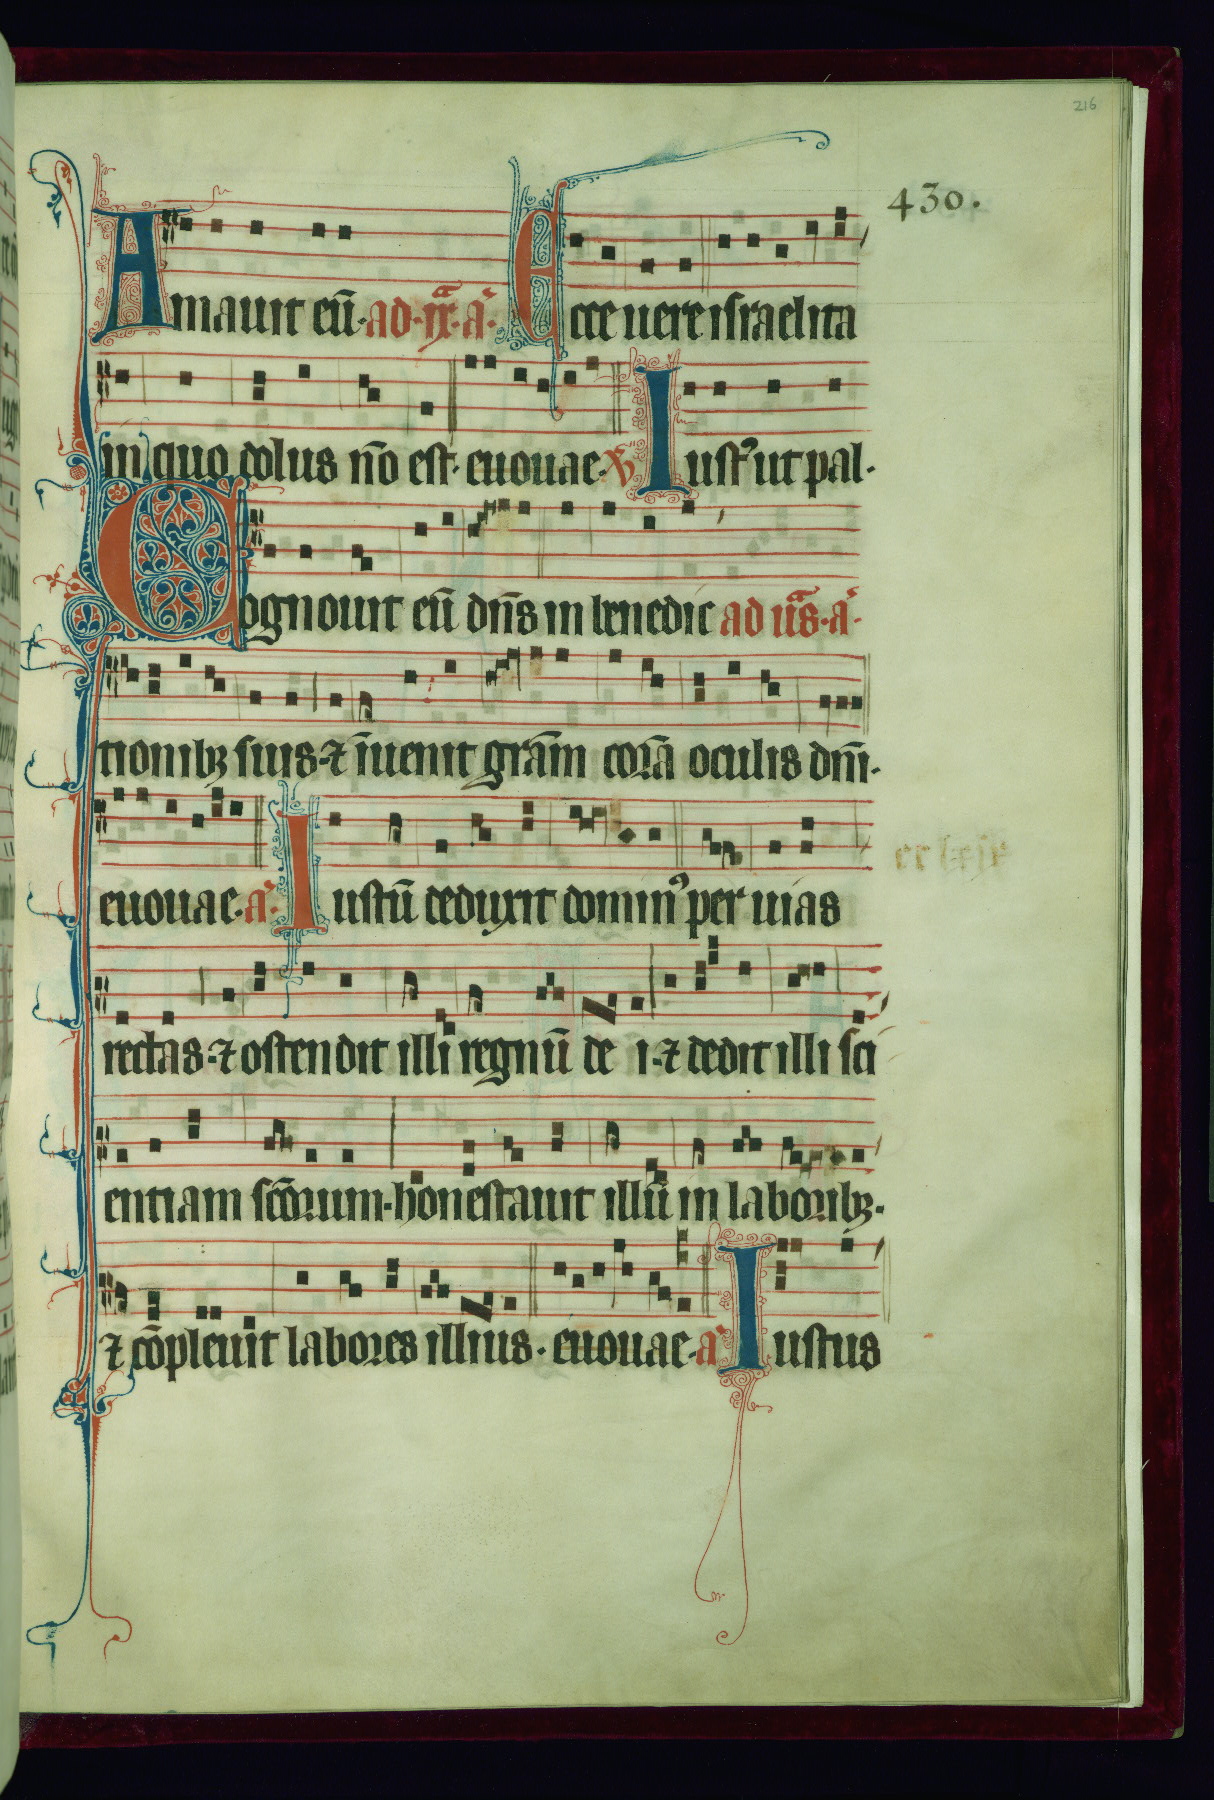 216
430.
Amauit eū· ad·ix·a͛· Ecce uere israelita
in quo dolus nō est· euouae· v̄ Iustꝰ ut pal·
Cognouit eū dn̄s in benedic ad ua͛s·a͛·
tionibꝫ suis·⁊ īuenit grām corā oculis dn̄i·
euouae·a͛· Iustū deduxit dominꝰ per uias
rectas·⁊ ostendit illi regnū de i·⁊ dedit illi sci
entiam scōrum·honestauit illū in laboribꝫ·
⁊ cōpleuit labores illius· euouae·a͛ Iustus